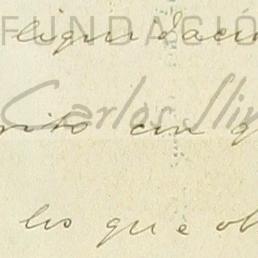 FUNDACIÓ
liquidació
Carlos Slim
rito en q
los que ob